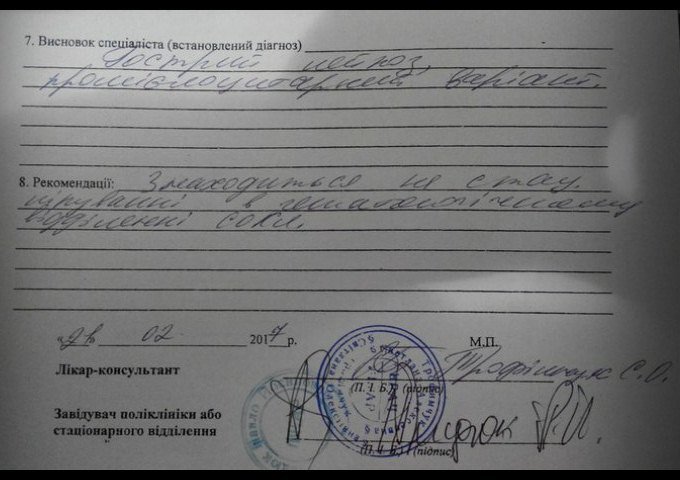 7. Висновок спеціаліста (встановлений діагноз)
Гострий лейкоз,
промієлоцитарний варіант.
8. Рекомендації: Знаходиться на стац.
лікуванні в гематологічному
відділенні СОКЛ.
02 2017 р.
М.П.
Лікар-консультант
Трофімчук С.О.
(П. І. Б.) (підпис)
Завідувач поліклініки або
стаціонарного відділення
(П. І. Б.) (підпис)